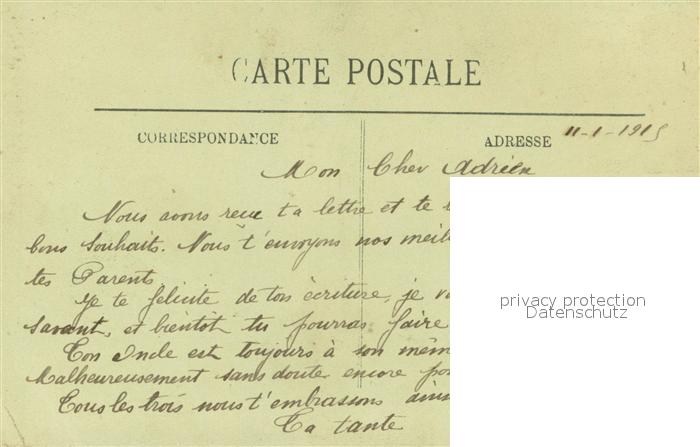 CARTE POSTALE
CORRESPONDANCE
ADRESSE 11-1-1915
Mon Cher Adrien
Nous avons reçu ta lettre et te
bons souhaits. Nous t'envoyons nos
tes Parents
Je te félicite de ton écriture, je
savant, et bientôt tu pourras faire
Ton Oncle est toujours à son
Malheureusement sans doute encore
Tous les trois nous t'embrassons
Ta tante
privacy protection
Datenschutz